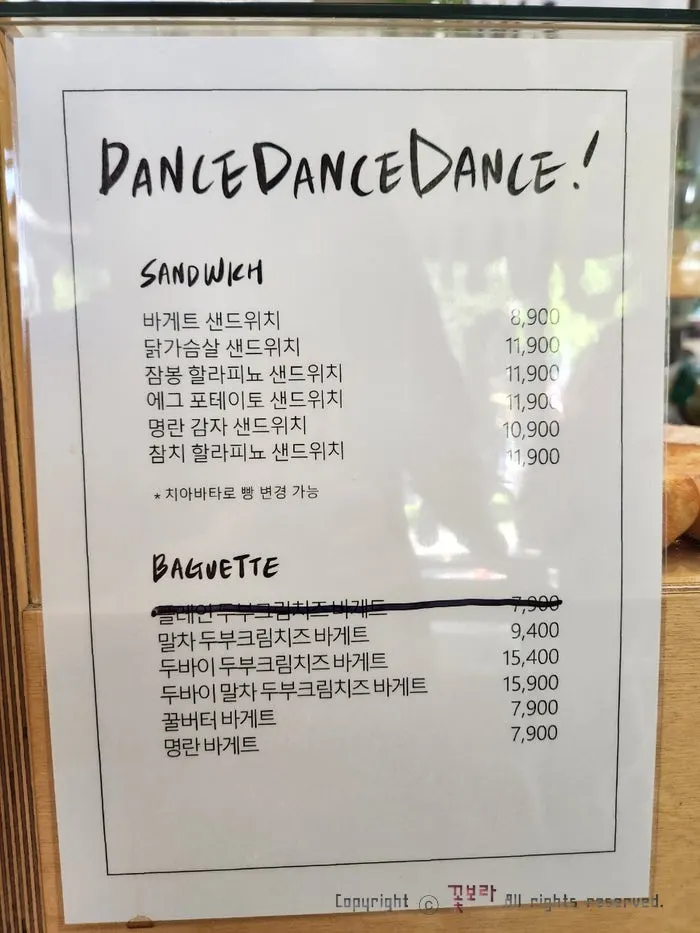 DANCE DANCE DANCE!
SANDWICH
바게트 샌드위치 8,900
닭가슴살 샌드위치 11,900
잠봉 할라피뇨 샌드위치 11,900
에그 포테이토 샌드위치 11,900
명란 감자 샌드위치 10,900
참치 할라피뇨 샌드위치 11,900
* 치아바타로 빵 변경 가능
BAGUETTE
플레인 두부크림치즈 바게트 7,900
말차 두부크림치즈 바게트 9,400
두바이 두부크림치즈 바게트 15,400
두바이 말차 두부크림치즈 바게트 15,900
꿀버터 바게트 7,900
명란 바게트 7,900
Copyright ⓒ 꽃보라 All rights reserved.